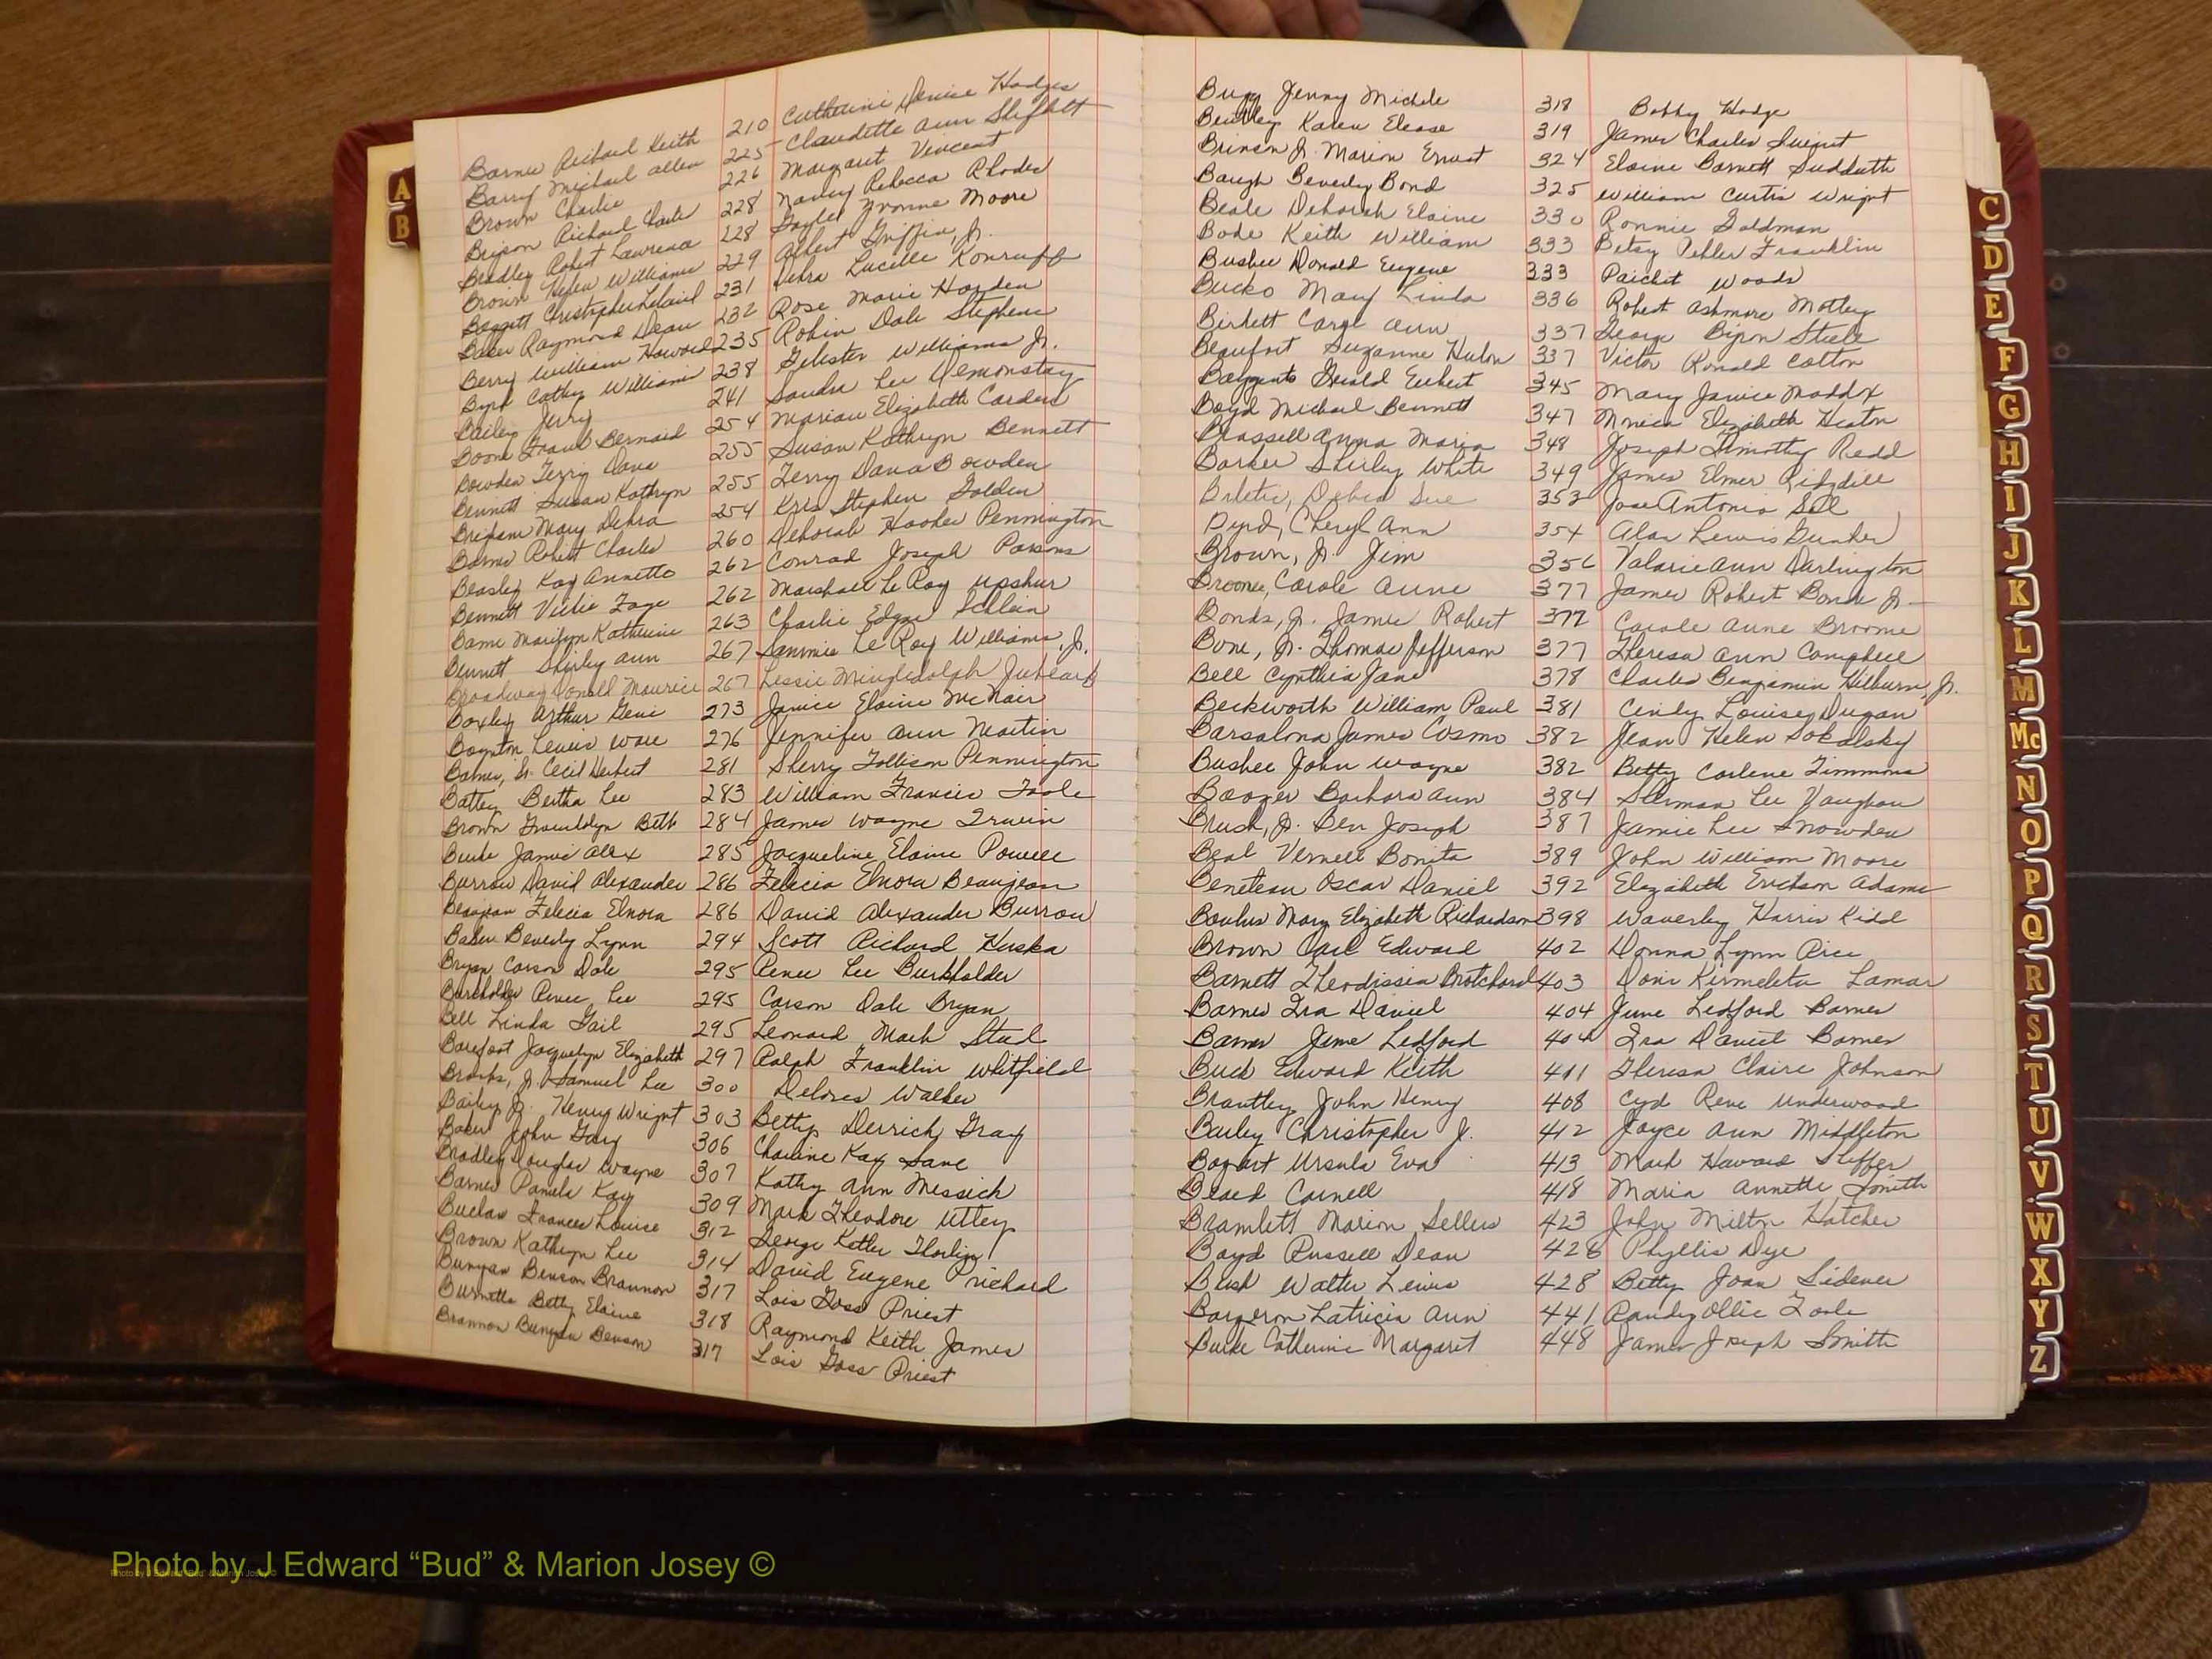 Barnes Richard Keith 210 Catherine Denise Hodges
Barry Michael Allen 225 Claudette Ann
Brown Charlie 226 Margaret Vincent
Richard 228 Nancy Rebecca Rhodes
Bradley Robert Lawrence 228 Yvonne Moore
Brown Helen Williams 229 Albert Griffin, Jr.
Baggett Christopher Leland 231 Debra Lucille
Baker Raymond Dean 232 Rose Marie Hayden
Berry William Howard 235 Robin Dale Stephens
Byrd Cathy Williams 238 Williams Jr.
Bailey Jerry 241 Sandra Lee
Boone Frank Bernard 254 Marian Elizabeth Carden
Bowden Terry Dana 255 Susan Kathryn Bennett
Bennett Susan Kathryn 255 Terry Dana Bowden
Mary Debra 254 Kris Stephen Golden
Barnes Robert Charles 260 Deborah Hooker Pennington
Beasley Kay Annette 262 Conrad Joseph Parsons
Bennett Faye 262 Marshall LeRoy Upshur
Marilyn Katherine 263 Charlie
Bennett Shirley Ann 267 Sammie Le Roy Williams, Jr.
Broadway Maurice 267 Lessie
Boxley Arthur Gene 273 Janice Elaine McNair
Boynton Lewis Ware 276 Jennifer Ann Martin
Barnes, Sr. Cecil Herbert 281 Sherry Tollison Pennington
Battey Bertha Lee 283 William Francis Toole
Brown Gwendolyn Beth 284 James Wayne Irwin
Burke James Alex 285 Jacqueline Elaine Powell
Burrow David Alexander 286 Felecia Elnora Beaujean
Beaujean Felecia Elnora 286 David Alexander Burrow
Baker Beverly Lynn 294 Scott Richard Huska
Bryan Carson Dale 295 Renee Lee Burkholder
Burkholder Renee Lee 295 Carson Dale Bryan
Bell Linda Gail 295 Leonard Mark
Barefoot Jacquelyn Elizabeth 297 Ralph Franklin Whitfield
Brooks, Jr. Samuel Lee 300 Delores Walker
Bailey Jr. Henry Wright 303 Betty Derrick Gray
Baker John Gary 306 Kay
Bradley Douglas Wayne 307 Kathy Ann Messick
Barnes Pamela Kay 309 Mark Theodore Utley
Frances Louise 312 George
Brown Kathryn Lee 314 David Eugene Prichard
Bunyan Benson Brannon 317 Lois Goss Priest
Burnette Betty Elaine 318 Raymond Keith James
Brannon Bunyan Benson 317 Lois Goss Priest
Bugg Jenny Michele 318 Bobby Hodge
Karen Elease 319 James Charles
Brinson Jr. Marion Ernest 324 Elaine Barnett Sudduth
Baugh Beverly Bond 325 William Curtis Wright
Beale Deborah Elaine 330 Ronnie Goldman
Bode Keith William 333 Betsy Franklin
Busbee Donald Eugene 333 Woods
Bucko Mary Linda 336 Robert Ashmore Motley
Birkett Carol Ann 337 George Steele
Beaufort Suzanne Hulon 337 Victor Ronald Cotton
345 Mary Janice Maddox
Boyd Michael Bennett 347 Elizabeth Heaton
Brassell Anna Maria 348 Joseph Timothy Redd
Barker Shirley White 349 James Elmer Ridgdill
Debra Sue 353 Jose Antonio
Byrd, Cheryl Ann 354 Alan Lewis
Brown, Jr. Jim 356 Valarie Ann Darlington
Broome, Carole Anne 377 James Robert Bonds Jr.
Bonds, Jr. James Robert 377 Carole Anne Broome
Bone, Jr. Thomas Jefferson 377 Theresa Ann Campbell
Bell Cynthia Jane 378 Charles Benjamin Hilburn, Jr.
Beckworth William Paul 381 Cindy Louise Dugan
Barsalona James Cosmo 382 Jean Helen Sokalsky
Busbee John Wayne 382 Betty Carlene Timmons
Boozer Barbara Ann 384 Sherman Lee Vaughan
Brush, Jr. Ben Joseph 387 Jamie Lee Snowden
Beal Vernell Bonita 389 John William Moore
Beneteau Oscar Daniel 392 Elizabeth Erickson Adams
Boulus Mary Elizabeth Richardson 398 Waverley Harris Kidd
Brown Carl Edward 402 Donna Lynn Rice
Barnett 403 Lamar
Barnes Ira Daniel 404 June Ledford Barnes
Barnes June Ledford 404 Ira Daniel Barnes
Buck Edward Keith 411 Theresa Claire Johnson
Brantley John Henry 408 Cyd Rene Underwood
Bailey Christopher J. 412 Joyce Ann Middleton
Bogart Ursula Eva 413 Mark Howard
Beard Cornell 418 Maria Annette Smith
Bramlett Marion Sellers 423 John Milton Hatcher
Boyd Russell Dean 428 Phyllis Dye
Bush Walter Lewis 428 Betty Joan Sidener
Bargeron Latricia Ann 441 Randy Ollie Toole
Burke Catherine Margaret 448 James Joseph Smith
A
B
C
D
E
F
G
H
I
J
K
L
M
Mc
N
O
P
Q
R
S
T
U
V
W
X
Y
Z
Photo by J Edward “Bud” & Marion Josey ©